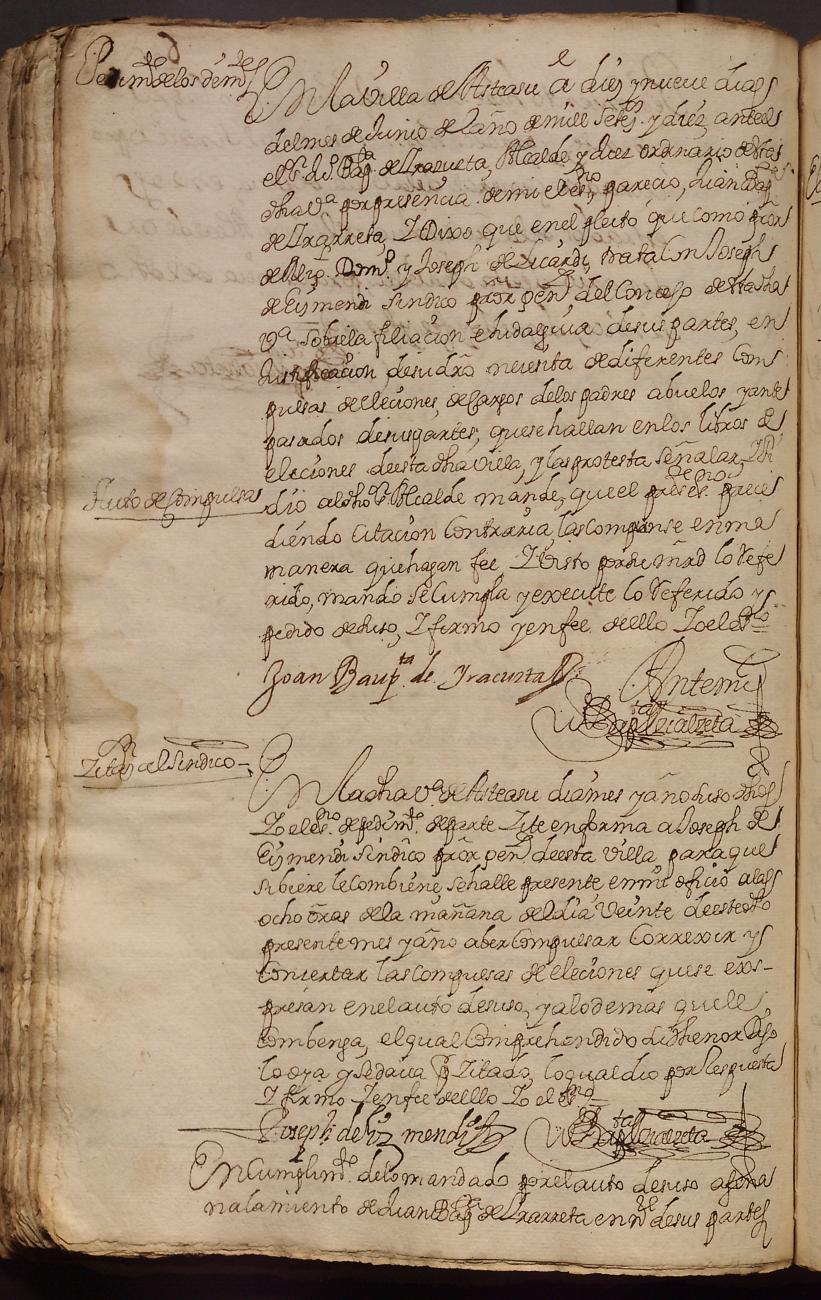 Pedimto de los de mte
En la Villa de Asteasu a diez y nueve dias
del mes de Junio de el año de mill setos y diez, ante el
el sr Ju Bapta de Yrazusta, Alcalde y Juez ordinario de sta
dha va por presencia de mi el essno parecio, Juan Bapta
de Yrarreta, Y Dixo que en el pleito que como pror
de Domo y Joseph de Licardi, trata Con Joseph
de Eizmendi Sindico pror gen del Concejo de sta dha
va sobre la filiacion e hidalguia de sus partes, en
Justificacion de su dro necesita de diferentes Com
pulsas de eleciones, de Cargos de los padres abuelos y ante
pasados de sus partes, que se hallan en los libros de
eleciones de esta dha Villa, y las protesta señalar, Y Pi
Auto de Compulsas
dio al dho sr Alcalde mande, que el preste essno prece
diendo Citacion Contraria, las Compulse en ma
nera que hagan fee Y Visto por su mrd lo Refe
rido, mando se Cumpla y execute lo Referido y
pedido de suso, Y firmo y en fee de ello Yo el essno =
Joan Baupta de Yracusta
Ante mi
Bapta Lizalzeta
Zitan al Sindico
En la dha va de Asteasu dia mes y año suso dhos
Yo el essno de pedimto de parte Zite en forma a Joseph de
Eizmendi Sindico pror gen de esta Villa para que
si biere le Combiene se halle presente en mi oficio a las
ocho oras de la mañana de el dia Veinte de este dho
presente mes y año aber Compulsar Correxir y
Concertar las Compulsas de eleciones que se exs-
presan en el auto de suso, y a lo demas que le
Combenga, el qual Comprehendido su thenor Dijo
lo oya y se dava por Zitado, lo qual dio por Respuesta
Y firmo Y en fee de ello Yo el essno
Joseph de Eizmendi
Bapta Lizalzeta
En Cumplimto de lo mandado por el auto de suso a seña
nalamiento de Juan Bapta de Yrarreta en nre de sus partes